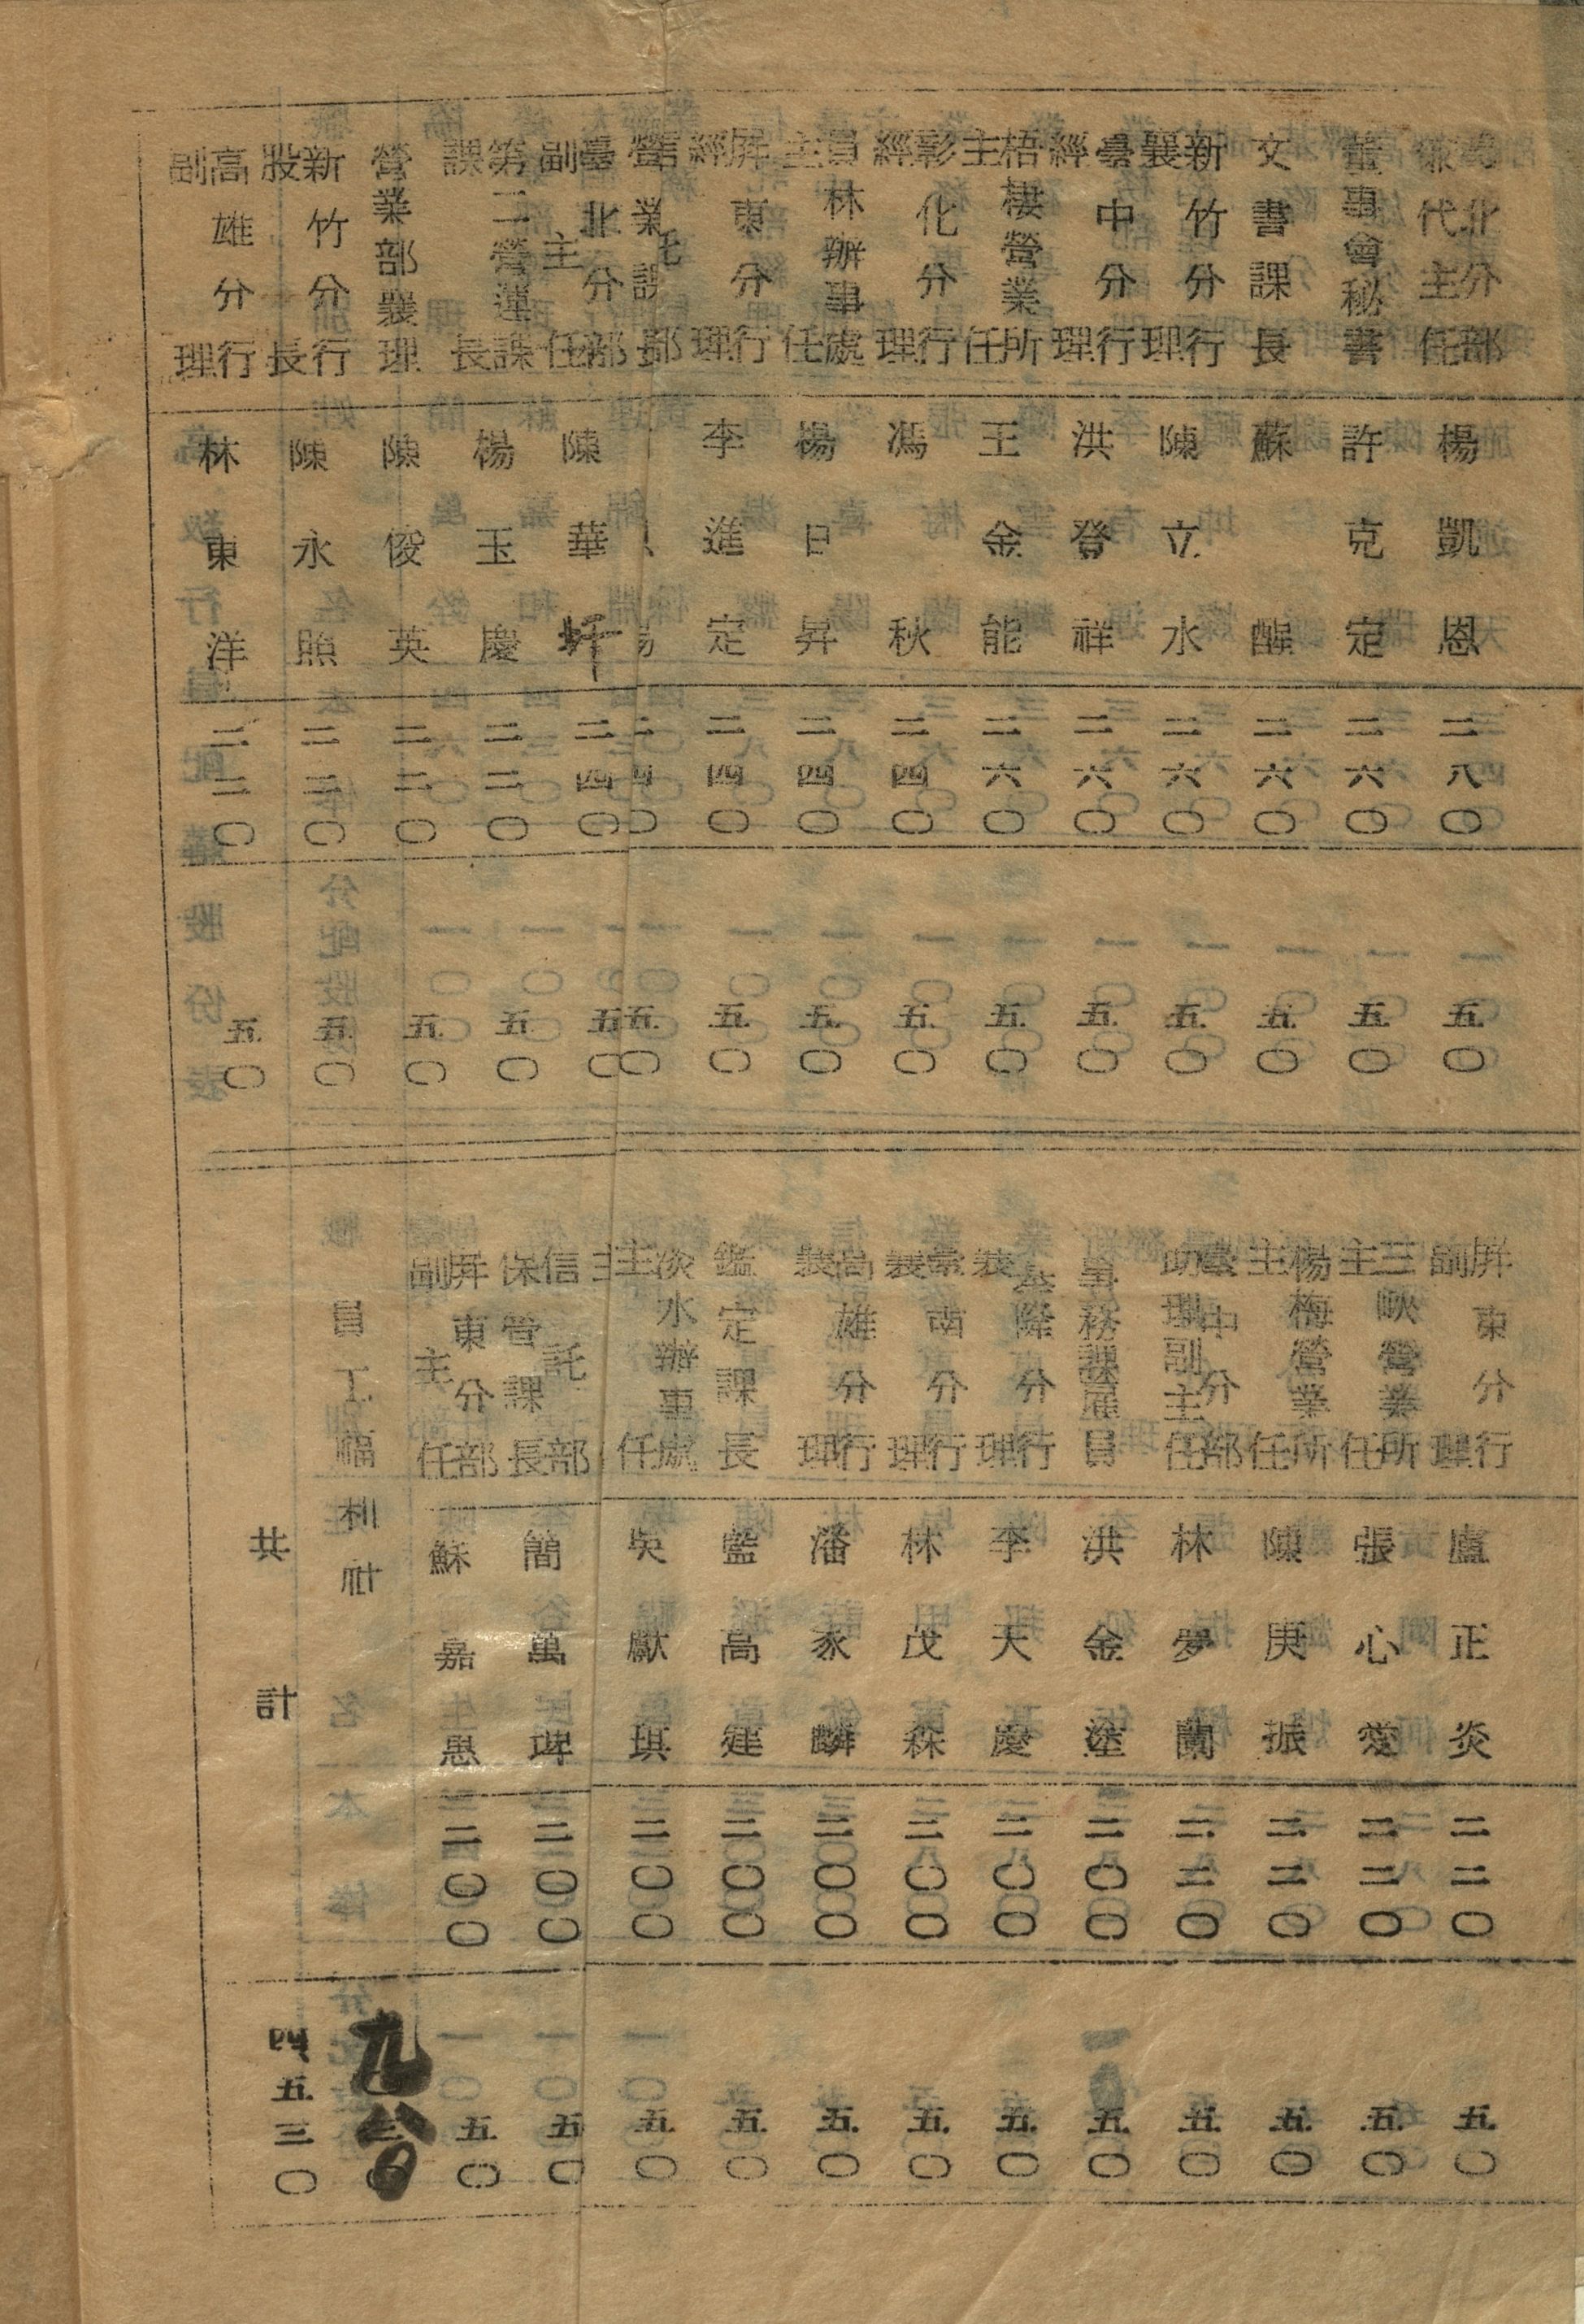 臺北分部兼代主任 楊凱恩 二八〇 五〇
董事會秘書 許克定 二六〇 五〇
文書課長 蘇醒 二六〇 五〇
新竹分行襄理 陳立水 二六〇 五〇
臺中分行經理 洪登祥 二六〇 五〇
梧棲營業所主任 王金能 二六〇 五〇
彰化分行經理 馮秋 二四〇 五〇
員林辦事處主任 楊日昇 二四〇 五〇
屏東分行經理 李進定 二四〇 五〇
信託部營業課長 二四〇 五〇
臺北分部副主任 陳華圩 二四〇 五〇
第二營運課課長 楊玉慶 二二〇 五〇
營業部襄理 陳俊英 二二〇 五〇
新竹分行股長 陳永照 二二〇 五〇
高雄分行副理 林東洋 二二〇 五〇
屏東分行副理 盧正炎 二二〇 五〇
三峽營業所主任 張心愛 二二〇 五〇
楊梅營業所主任 陳庚振 二二〇 五〇
臺中分部助理副主任 林夢蘭 二二〇 五〇
事務課雇員 洪金塗 二〇〇 五〇
基隆分行襄理 李天慶 二〇〇 五〇
臺南分行襄理 林茂森 二〇〇 五〇
高雄分行襄理 潘家麟 二〇〇 五〇
鑑定課長 藍高建 二〇〇 五〇
淡水辦事處主任 吳獻琪 二〇〇 五〇
信託部保管課長 簡萬埤 二〇〇 五〇
屏東分部副主任 蘇嘉惠 二〇〇 五〇
員工福利社 九八〇
共計 四五三〇